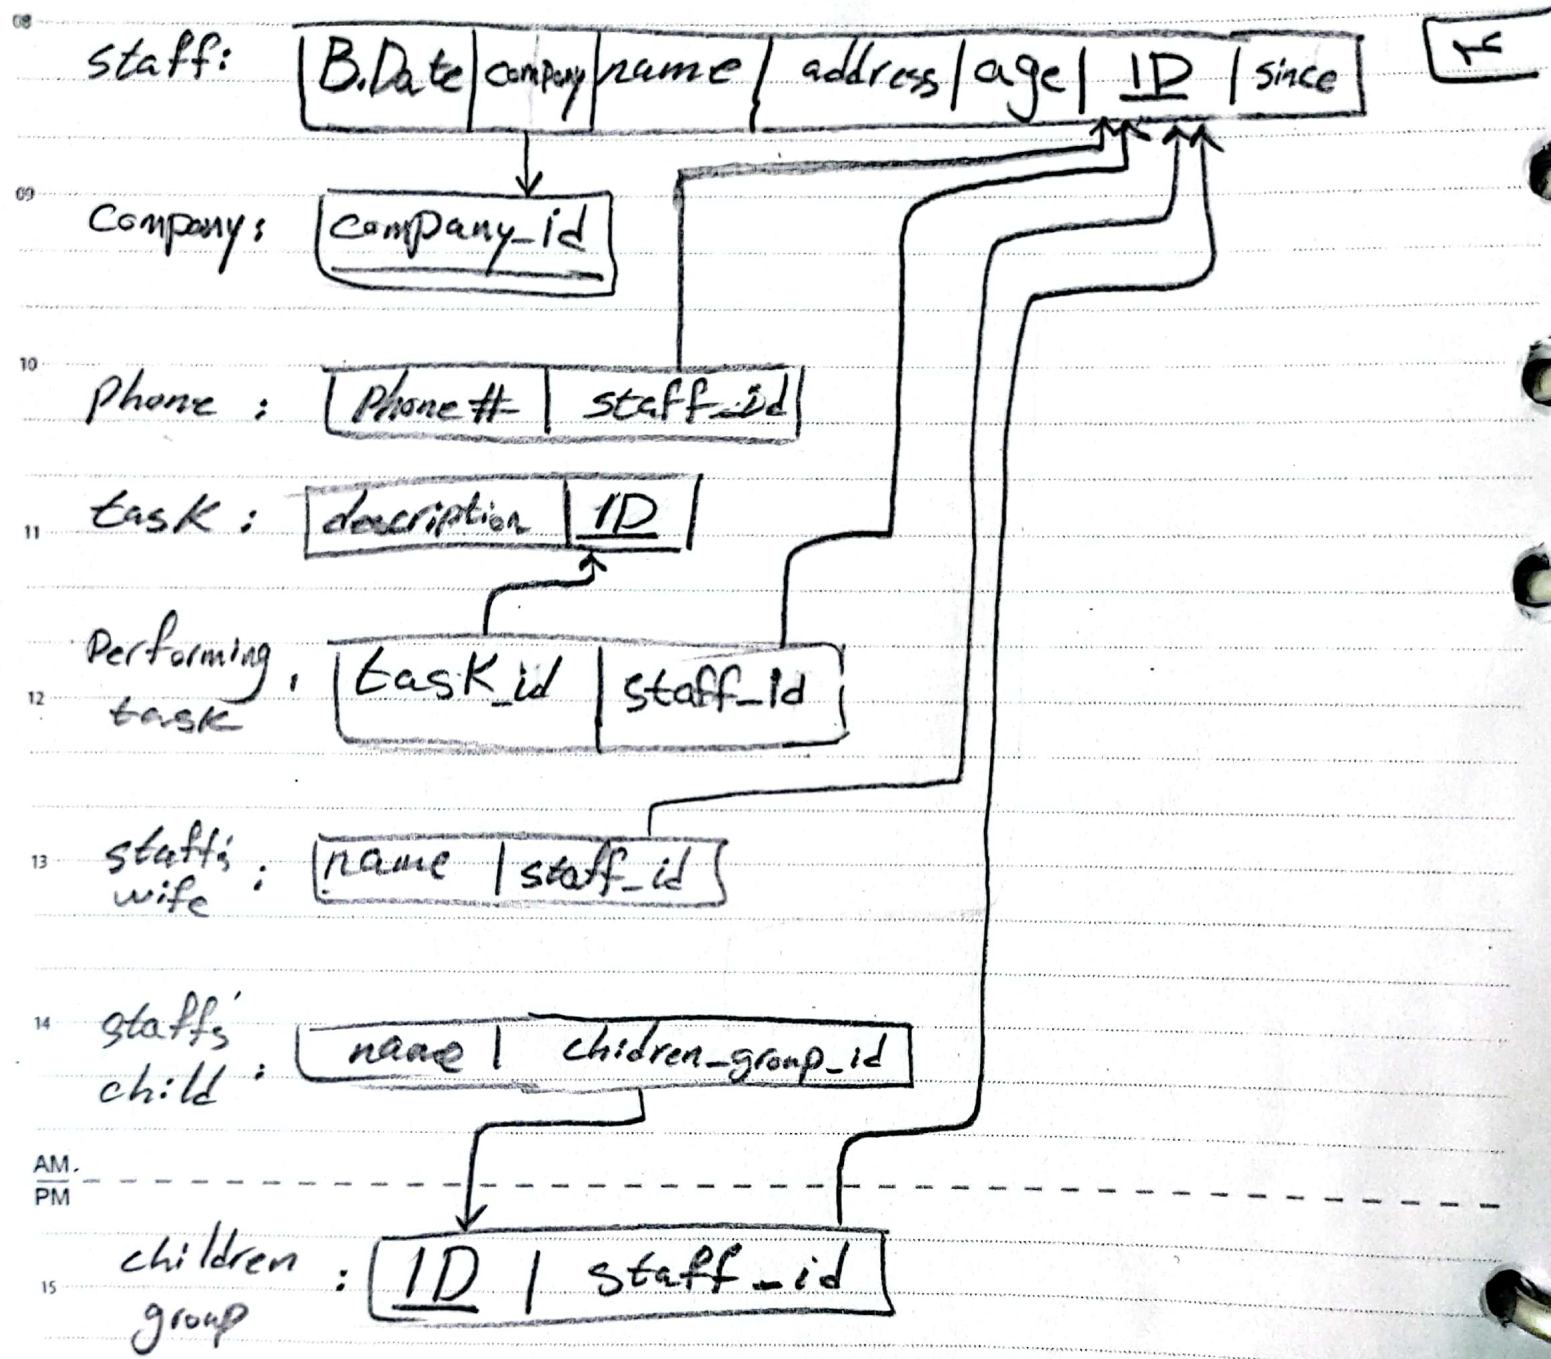 08
staff: B.Date company name address age ID since
09
Company: company_id
10
phone: phone# staff_id
task: description ID
11
Performing
task
task_id staff_id
12
staff's
wife: name staff_id
13
14
staffs'
child: name chidren_group_id
AM.
PM
children
group: ID staff_id
15